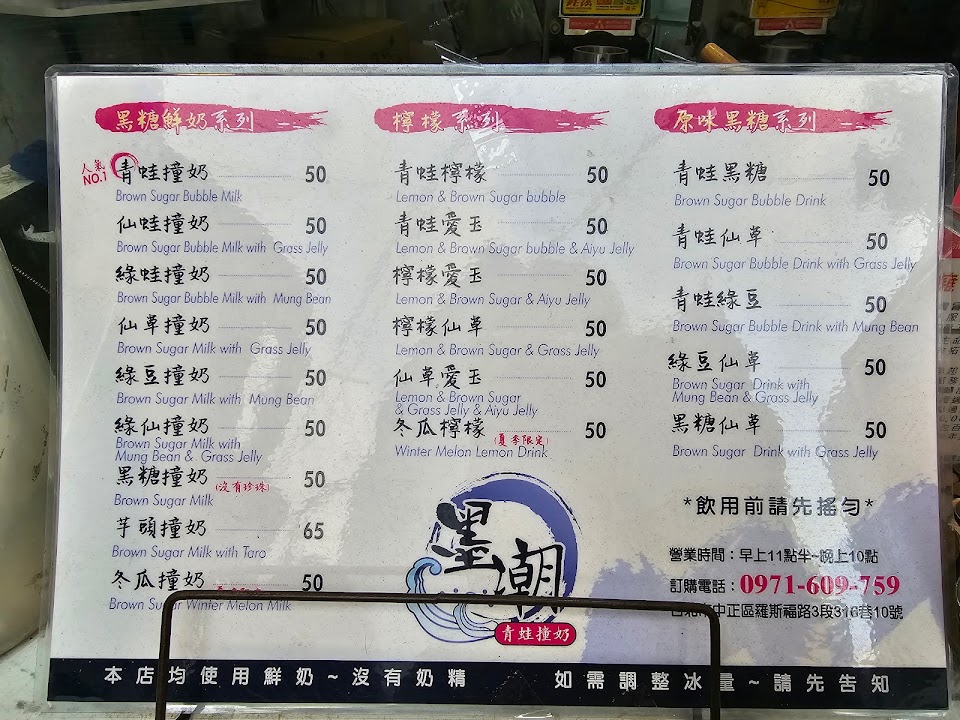 黑糖鮮奶系列
人氣
NO.1
青蛙撞奶 50
Brown Sugar Bubble Milk
仙蛙撞奶 50
Brown Sugar Bubble Milk with Grass Jelly
綠蛙撞奶 50
Brown Sugar Bubble Milk with Mung Bean
仙草撞奶 50
Brown Sugar Milk with Grass Jelly
綠豆撞奶 50
Brown Sugar Milk with Mung Bean
綠仙撞奶 50
Brown Sugar Milk with
Mung Bean & Grass Jelly
黑糖撞奶 (沒有珍珠) 50
Brown Sugar Milk
芋頭撞奶 65
Brown Sugar Milk with Taro
冬瓜撞奶 50
Brown Sugar Winter Melon Milk
檸檬系列
青蛙檸檬 50
Lemon & Brown Sugar bubble
青蛙愛玉 50
Lemon & Brown Sugar bubble & Aiyu Jelly
檸檬愛玉 50
Lemon & Brown Sugar & Aiyu Jelly
檸檬仙草 50
Lemon & Brown Sugar & Grass Jelly
仙草愛玉 50
Lemon & Brown Sugar
& Grass Jelly & Aiyu Jelly
冬瓜檸檬 (夏季限定) 50
Winter Melon Lemon Drink
墨潮
青蛙撞奶
原味黑糖系列
青蛙黑糖 50
Brown Sugar Bubble Drink
青蛙仙草 50
Brown Sugar Bubble Drink with Grass Jelly
青蛙綠豆 50
Brown Sugar Bubble Drink with Mung Bean
綠豆仙草 50
Brown Sugar Drink with
Mung Bean & Grass Jelly
黑糖仙草 50
Brown Sugar Drink with Grass Jelly
*飲用前請先搖勻*
營業時間：早上11點半~晚上10點
訂購電話：0971-609-759
中正區羅斯福路3段316巷10號
本店均使用鮮奶~沒有奶精 如需調整冰量~請先告知